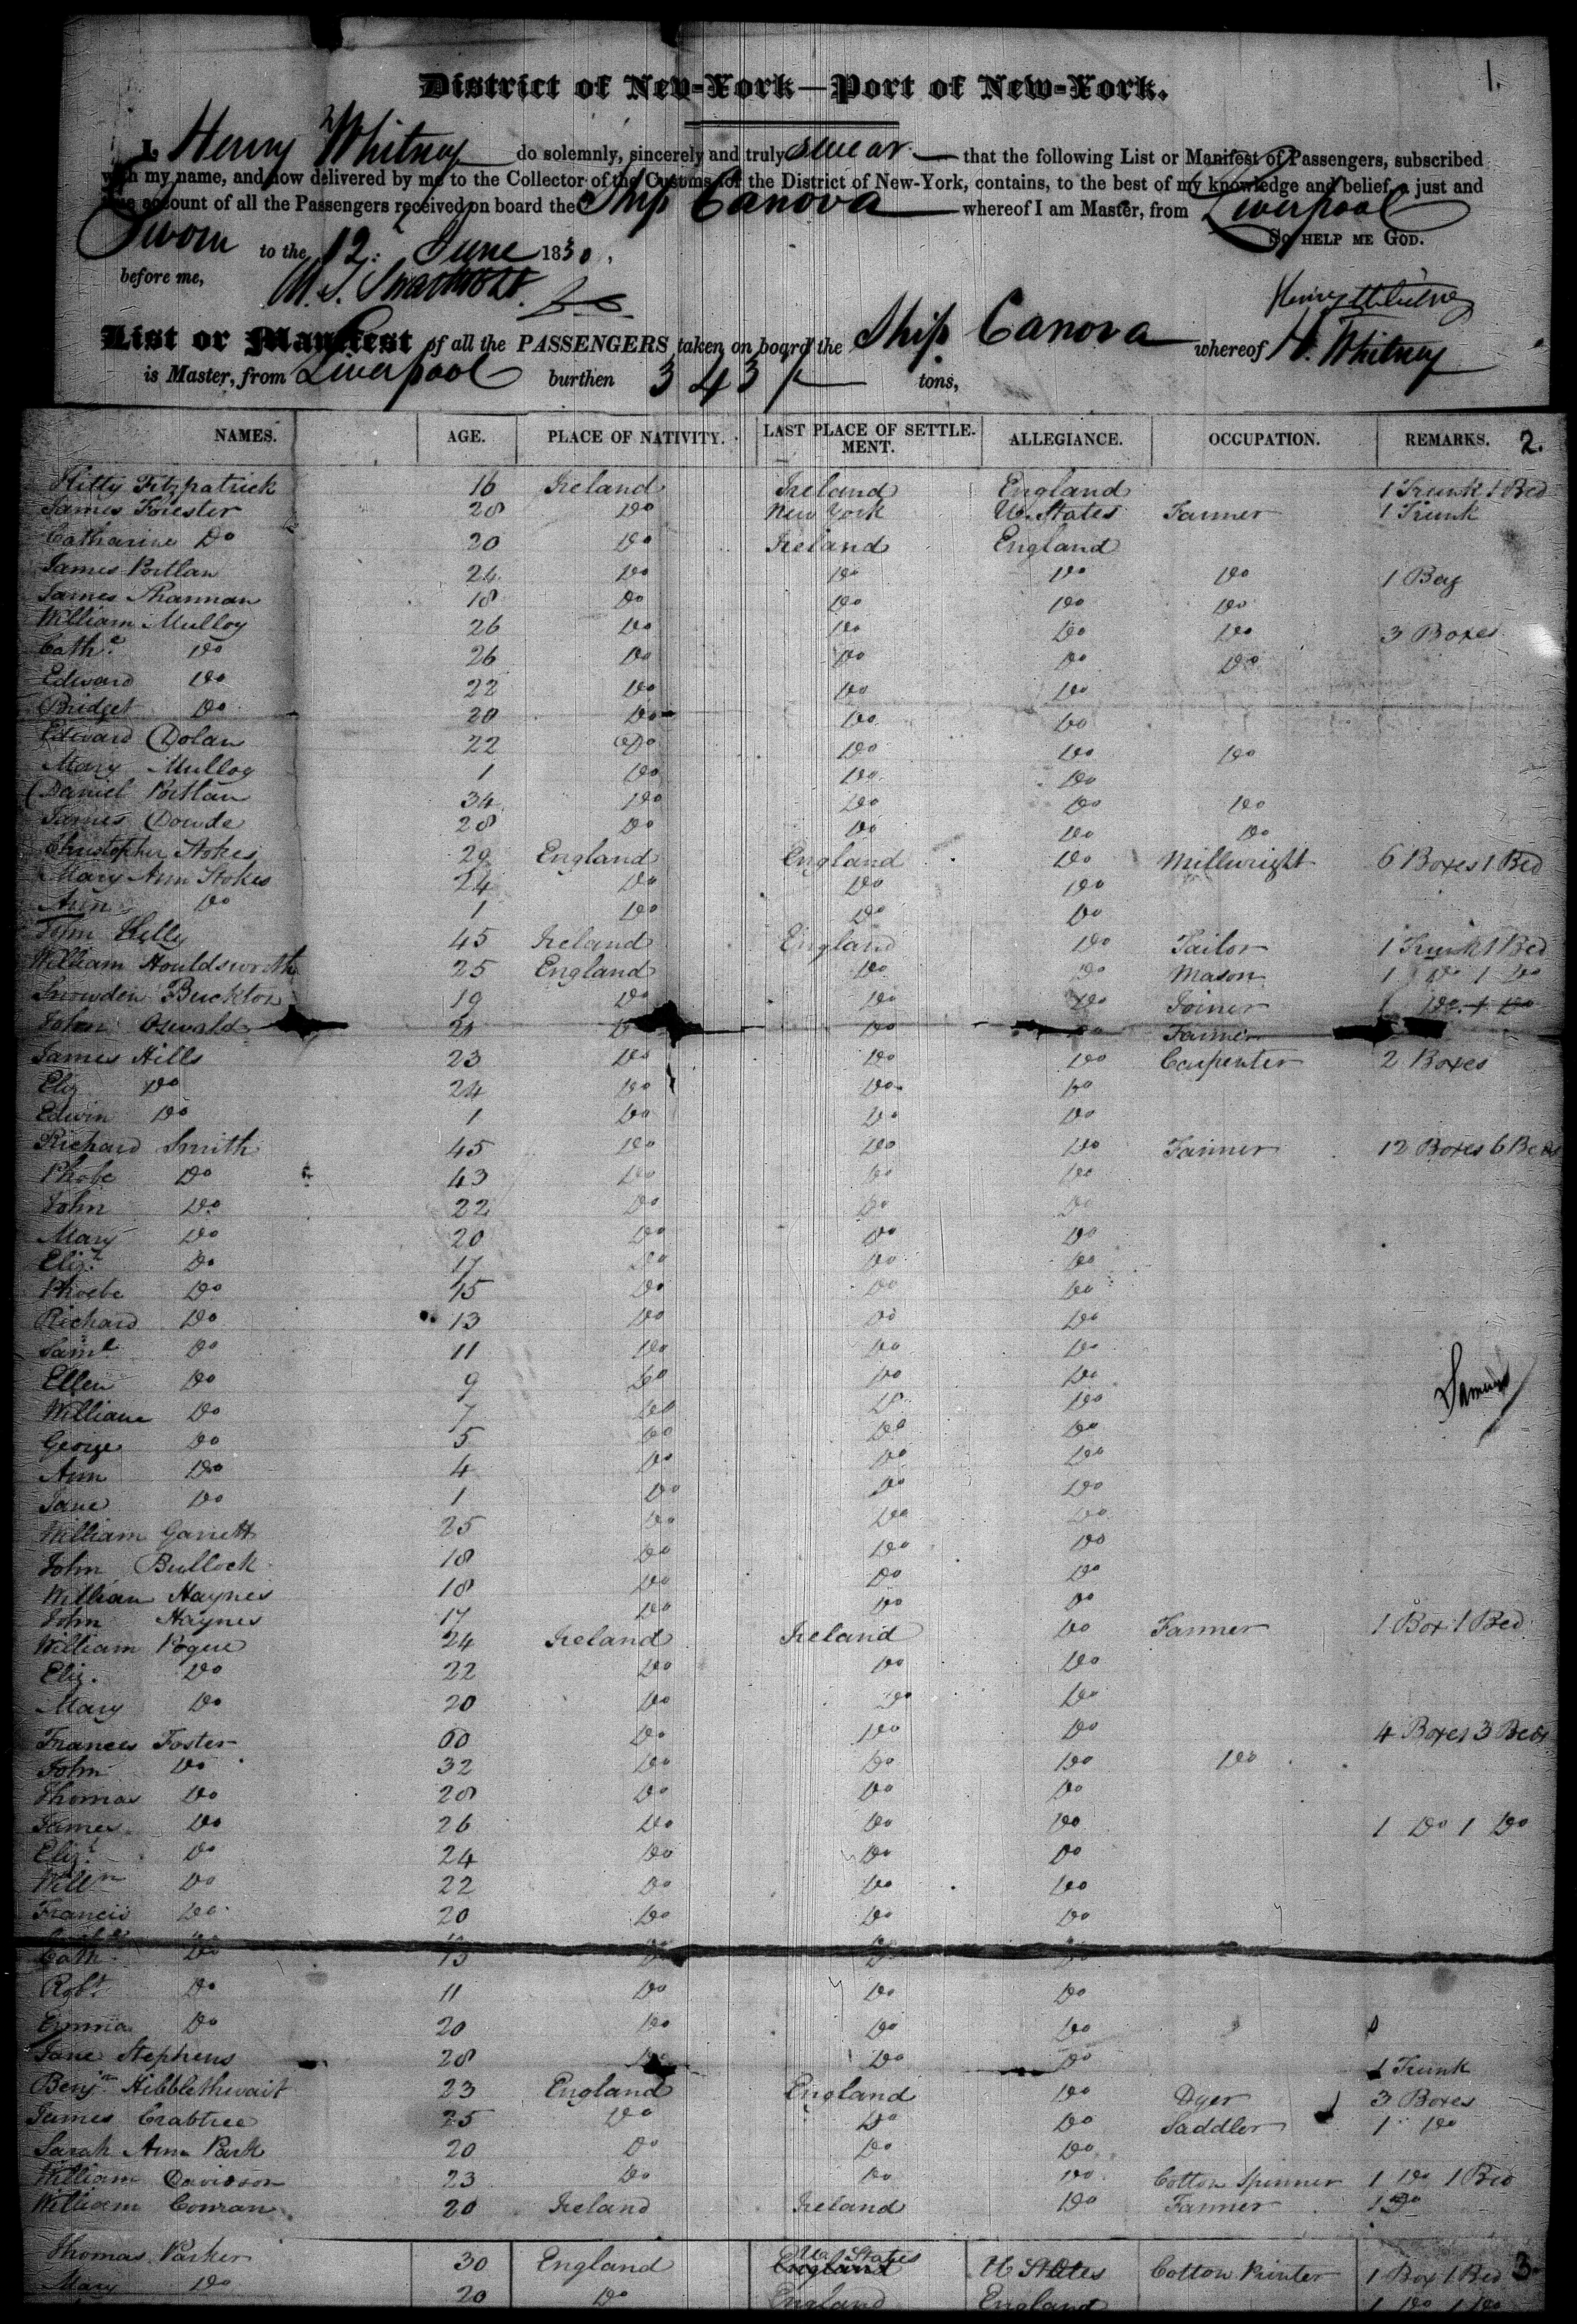 1.
District of New-York—Port of New-York.
I, Henry Whitney do solemnly, sincerely and truly swear that the following List or Manifest of Passengers, subscribed
with my name, and now delivered by me to the Collector of the Customs for the District of New-York, contains, to the best of my knowledge and belief, a just and
true account of all the Passengers received on board the Ship Canova whereof I am Master, from Liverpool
Sworn to the 12 June 1830. So HELP ME GOD.
before me,
Henry Whitney
List or Manifest of all the PASSENGERS taken on board the Ship Canova whereof H. Whitney
is Master, from Liverpool burthen 343 tons,
NAMES. AGE. PLACE OF NATIVITY. LAST PLACE OF SETTLEMENT. ALLEGIANCE. OCCUPATION. REMARKS. 2.
Kitty Fitzpatrick 16 Ireland Ireland England 1 Trunk 1 Bed
James Forester 28 Do New York U. States Farmer 1 Trunk
Catharine Do 20 Do Ireland England
James Portlan 24 Do Do Do Do 1 Bag
James 18 Do Do Do Do
William Mulloy 26 Do Do Do Do 3 Boxes
Cathe. Do 26 Do Do Do Do
Edward Do 22 Do Do Do
Bridget Do 20 Do Do Do
Edward Dolan 22 Do Do Do Do
Mary Mulloy 1 Do Do Do
Daniel Portlan 34 Do Do Do Do
James Dowde 28 Do Do Do Do
Christopher Stokes 29 England England Do Millwright 6 Boxes 1 Bed
Mary Ann Stokes 24 Do Do Do
Ann Do 1 Do Do Do
Kelly 45 Ireland England Do Tailor 1 Trunk 1 Bed
William Houldsworth 25 England Do Do Mason 1 Do 1 Do
Snowden Buckton 19 Do Do Do Joiner 1 Do 1 Do
John Oswald Do Farmer
James Hills 23 Do Do Do Carpenter 2 Boxes
Eliz Do 24 Do Do Do
Edwin Do 1 Do Do Do
Richard Smith 45 Do Do Do Farmer 12 Boxes 6 Beds
Phobe Do 43 Do Do Do
John Do 22 Do Do Do
Mary Do 20 Do Do Do
Elizh. Do 17 Do Do Do
Phoebe Do 15 Do Do Do
Richard Do 13 Do Do Do
Saml. Do 11 Do Do Do
Ellen Do 9 Do Do Do
William Do 7 Do Do Do
George Do 5 Do Do Do
Ann Do 4 Do Do Do
Jane Do 1 Do Do Do
William Garrett 25 Do Do Do
John Bullock 18 Do Do Do
William Haynes 18 Do Do Do
John Haynes 17 Do Do Do
William Pogue 24 Ireland Ireland Do Farmer 1 Box 1 Bed
Eliz. Do 22 Do Do Do
Mary Do 20 Do Do Do
Frances Foster 60 Do Do Do 4 Boxes 3 Beds
John Do 32 Do Do Do Do
Thomas Do 28 Do Do Do
James Do 26 Do Do Do 1 Do 1 Do
Elizh. Do 24 Do Do Do
Willm Do 22 Do Do Do
Francis Do 20 Do Do Do
Cath Do
Robt. Do 11 Do Do Do
Emma Do 20 Do Do Do
Jane Stephens 28 Do Do Do 1 Trunk
Benjn Hibblethwait 23 England England Do Dyer 3 Boxes
James Crabtree 25 Do Do Do Saddler 1 Do
Sarah Ann Park 20 Do Do Do
William Davidson 23 Do Do Do Cotton Spinner 1 Do 1 Bed
William Conran 20 Ireland Ireland Do Farmer 1 Do
Thomas Parker 30 England U. States England U States Cotton Printer 1 Box 1 Bed 3
Mary Do 20 Do England England 1 Do 1 Do